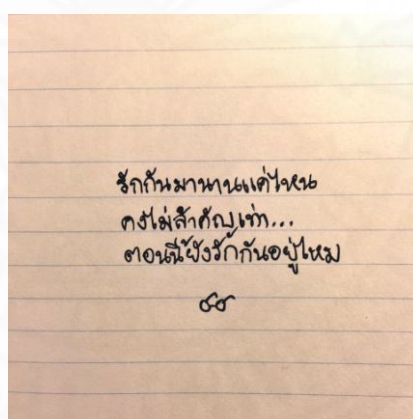 รักกันมานานแค่ไหน
คงไม่สำคัญเท่า...
ตอนนี้ยังรักกันอยู่ไหม